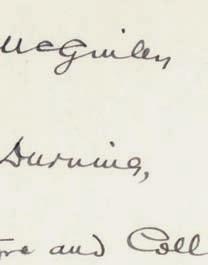 McGinley
Durning,
ore and Coll